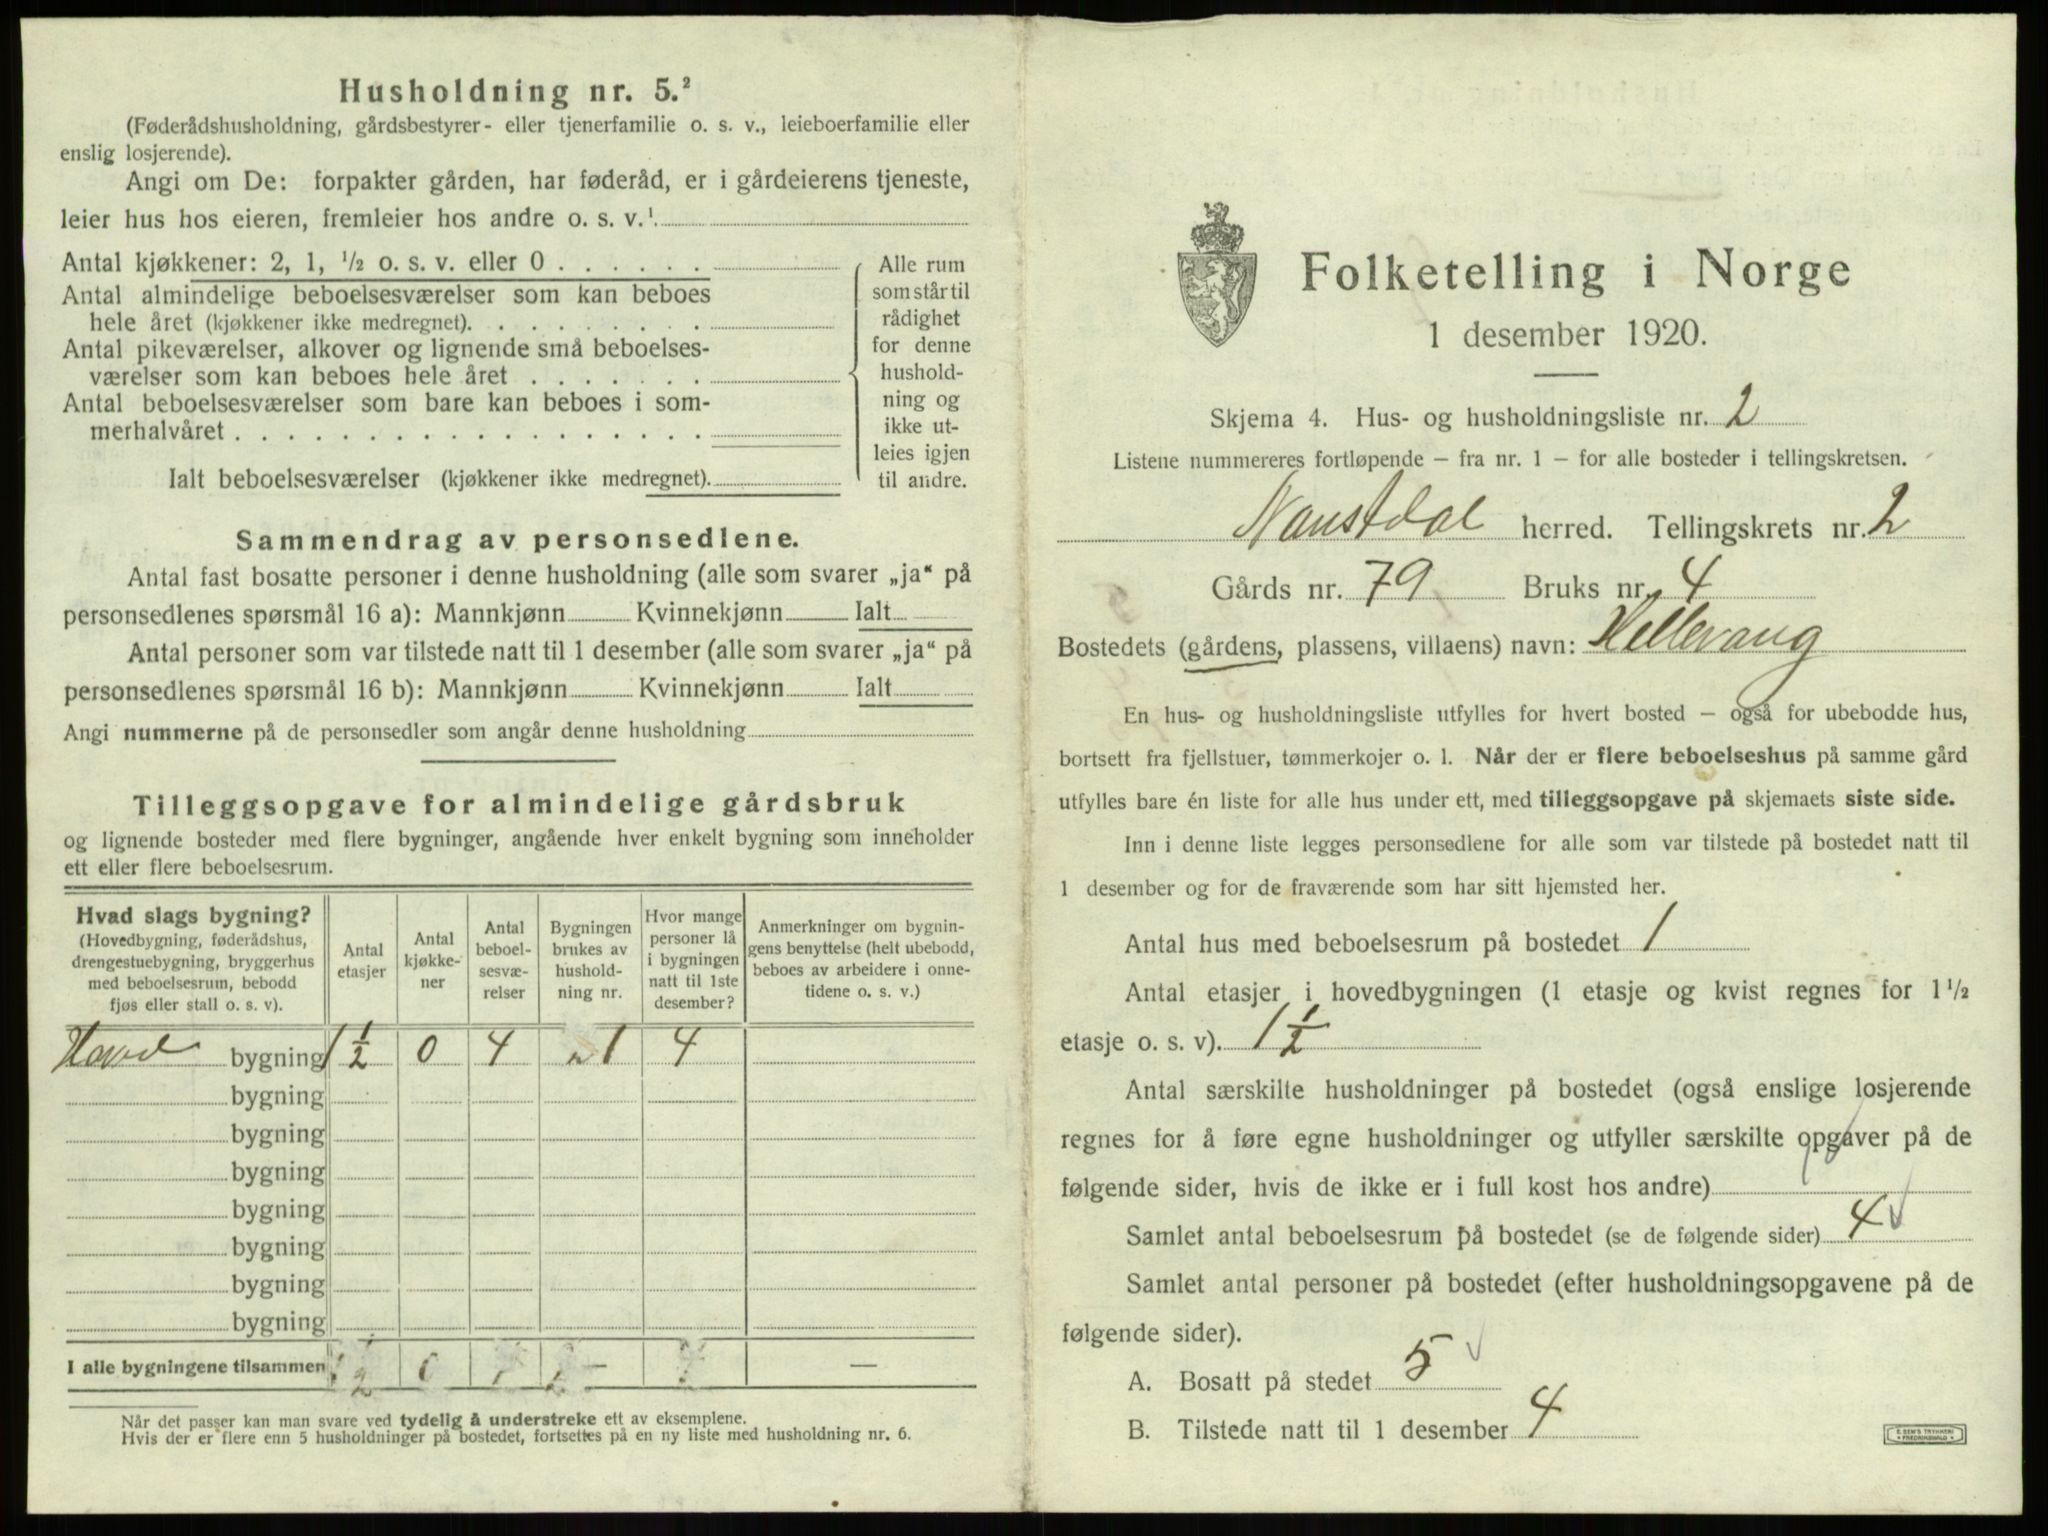 Husholdning nr. 5.²
(Føderådshusholdning, gårdsbestyrer- eller tjenerfamilie o. s. v., leieboerfamilie eller
enslig losjerende).
Angi om De: forpakter gården, har føderåd, er i gårdeierens tjeneste,
leier hus hos eieren, fremleier hos andre o. s. v.¹
Antal kjøkkener: 2, 1, ½ o. s. v. eller 0 . . . . . .
Antal almindelige beboelsesværelser som kan beboes
hele året (kjøkkener ikke medregnet). . . . . . . . .
Antal pikeværelser, alkover og lignende små beboelses-
værelser som kan beboes hele året . . . . . . .
Antal beboelsesværelser som bare kan beboes i som-
merhalvåret . . . . . . . . . . . . . . . . . .
Ialt beboelsesværelser (kjøkkener ikke medregnet).
Alle rum
som står til
rådighet
for denne
hushold-
ning og
ikke ut-
leies igjen
til andre.
Sammendrag av personsedlene.
Antal fast bosatte personer i denne husholdning (alle som svarer „ja“ på
personsedlenes spørsmål 16 a): Mannkjønn Kvinnekjønn Ialt
Antal personer som var tilstede natt til 1 desember (alle som svarer „ja“ på
personsedlenes spørsmål 16 b): Mannkjønn Kvinnekjønn Ialt
Angi nummerne på de personsedler som angår denne husholdning
Tilleggsopgave for almindelige gårdsbruk
og lignende bosteder med flere bygninger, angående hver enkelt bygning som inneholder
ett eller flere beboelsesrum.
Hvad slags bygning?
(Hovedbygning, føderådshus,
drengestuebygning, bryggerhus
med beboelsesrum, bebodd
fjøs eller stall o. s. v).
Antal
etasjer
Antal
kjøkke-
ner
Antal
beboel-
sesvæ-
relser
Bygningen
brukes av
hushold-
ning nr.
Hvor mange
personer lå
i bygningen
natt til 1ste
desember?
Anmerkninger om bygnin-
gens benyttelse (helt ubebodd,
beboes av arbeidere i onne-
tidene o. s. v.)
Hoved bygning 1 ½ 0 4 1 4
bygning
bygning
bygning
bygning
bygning
bygning
bygning
I alle bygningene tilsammen — —
Når det passer kan man svare ved tydelig å understreke ett av eksemplene.
Hvis der er flere enn 5 husholdninger på bostedet, fortsettes på en ny liste med husholdning nr. 6.
Folketelling i Norge
1 desember 1920.
Skjema 4. Hus- og husholdningsliste nr. 2
Listene nummereres fortløpende – fra nr. 1 – for alle bosteder i tellingskretsen.
Naustdal herred. Tellingskrets nr. 2
Gårds nr. 79 Bruks nr. 4
Bostedets (gårdens, plassens, villaens) navn: Hellevang
En hus- og husholdningsliste utfylles for hvert bosted – også for ubebodde hus,
bortsett fra fjellstuer, tømmerkojer o. l. Når der er flere beboelseshus på samme gård
utfylles bare én liste for alle hus under ett, med tilleggsopgave på skjemaets siste side.
Inn i denne liste legges personsedlene for alle som var tilstede på bostedet natt til
1 desember og for de fraværende som har sitt hjemsted her.
Antal hus med beboelsesrum på bostedet 1
Antal etasjer i hovedbygningen (1 etasje og kvist regnes for 1½
etasje o. s. v). 1 ½
Antal særskilte husholdninger på bostedet (også enslige losjerende
regnes for å føre egne husholdninger og utfyller særskilte opgaver på de
følgende sider, hvis de ikke er i full kost hos andre)
Samlet antal beboelsesrum på bostedet (se de følgende sider) 4
Samlet antal personer på bostedet (efter husholdningsopgavene på de
følgende sider).
A. Bosatt på stedet 5
B. Tilstede natt til 1 desember 4
E. SEM'S TRYKKERI
FREDRIKSHALD